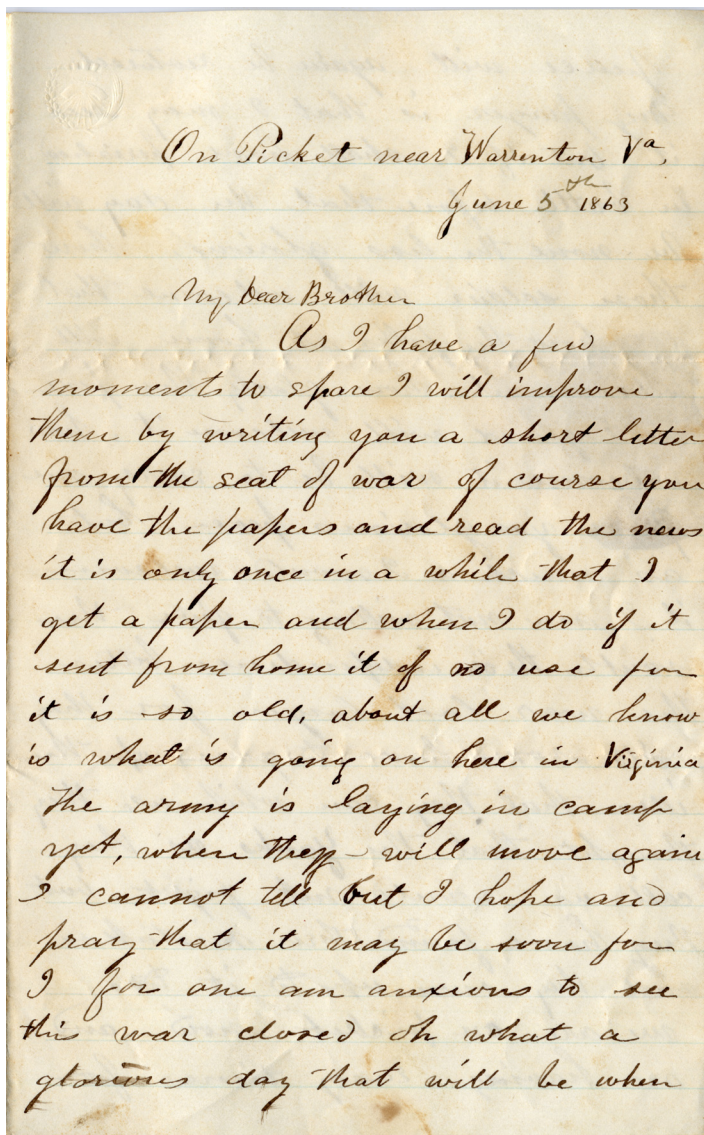 On Picket near Warrenton Va,
June 5th 1863
My Dear Brother
As I have a few
moments to spare I will improve
them by writing you a short letter
from the seat of war of course you
have the papers and read the news
it is only once in a while that I
get a paper and when I do if it
sent from home it of no use for
it is so old, about all we know
is what is going on here in Virginia
the army is laying in camp
yet, when they will move again
I cannot tell but I hope and
pray that it may be soon for
I for one am anxious to see
this war closed oh what a
glorious day that will be when